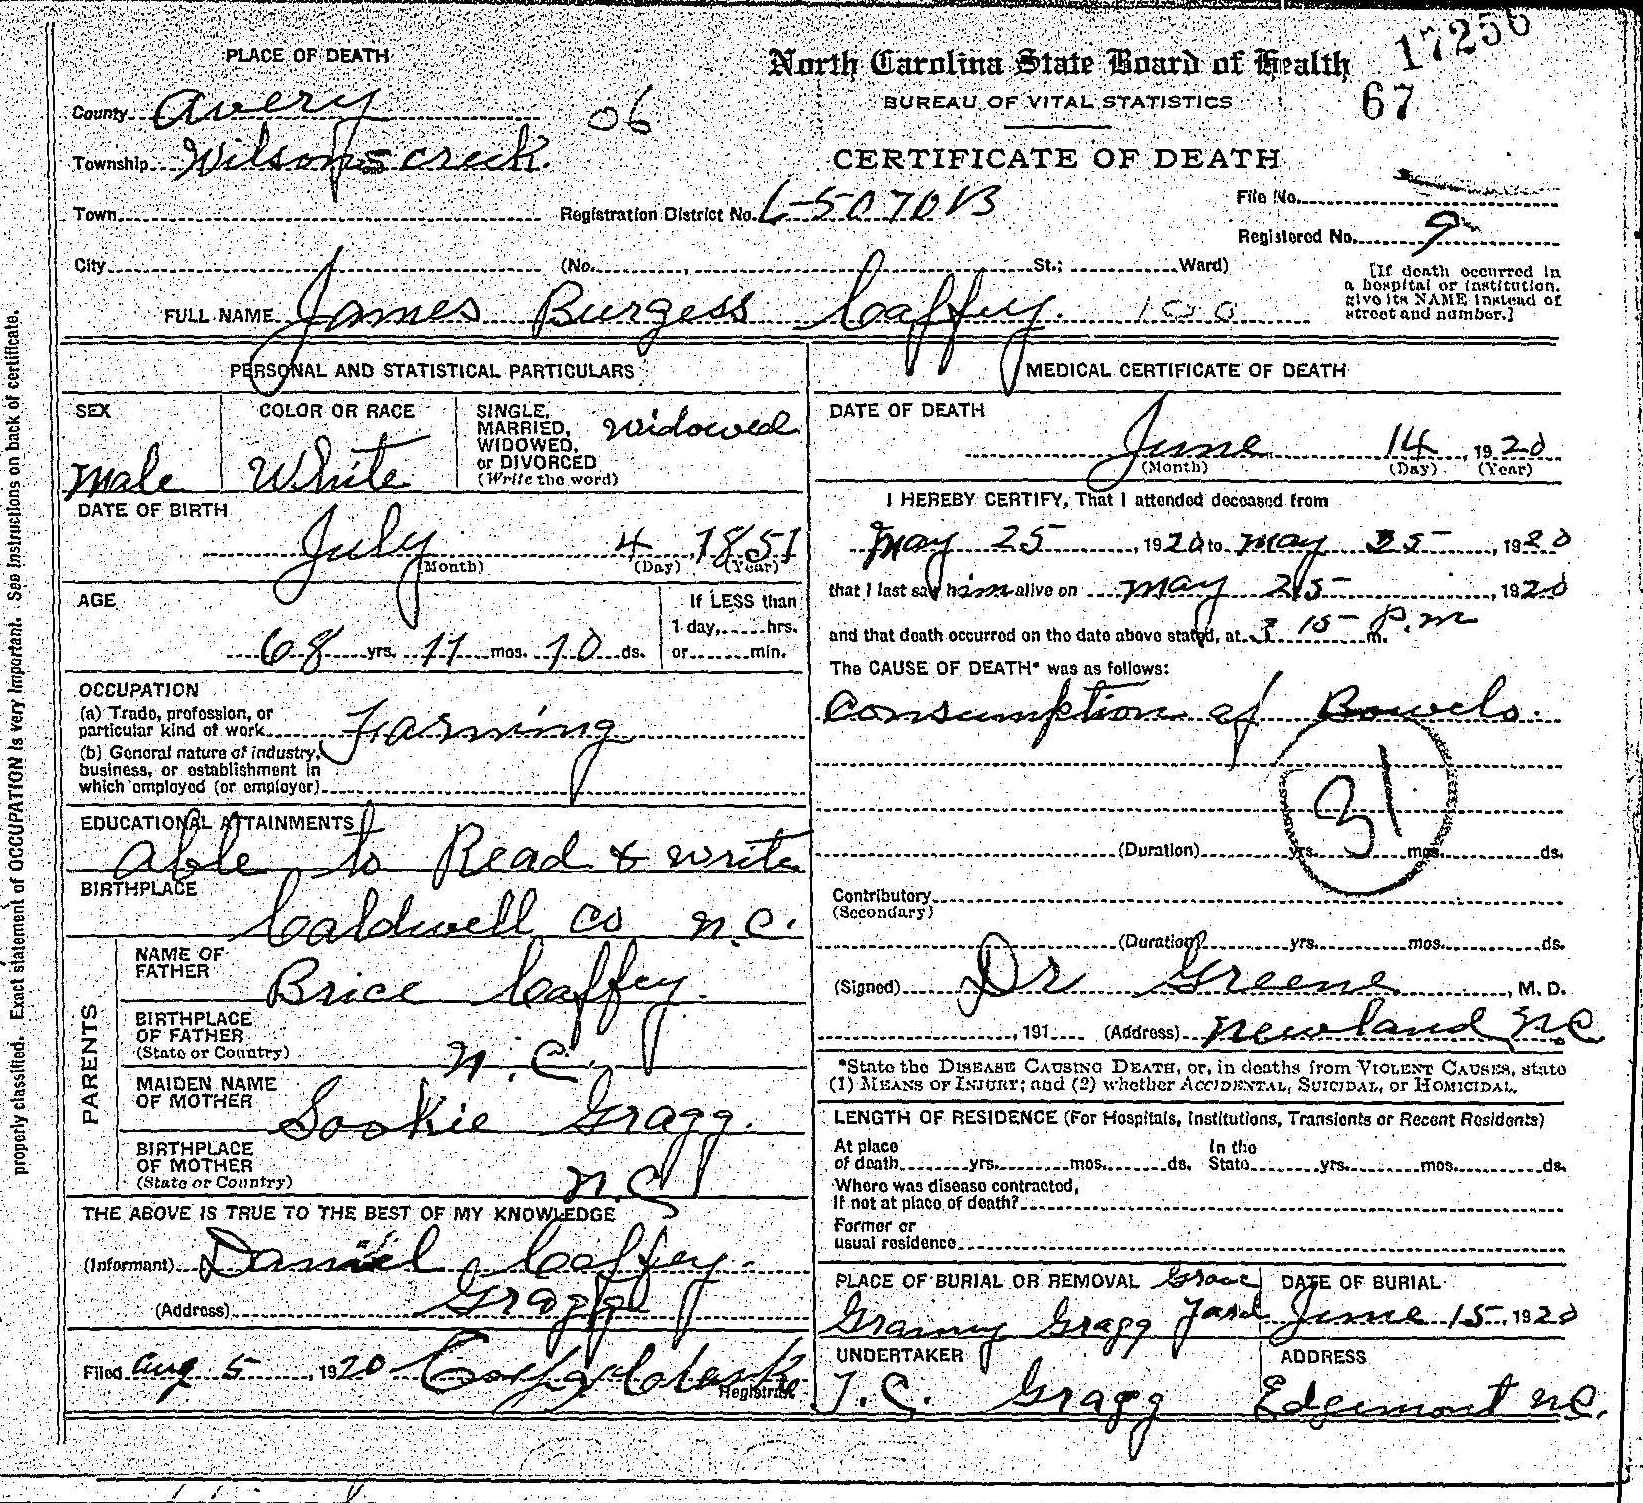 17256
PLACE OF DEATH
North Carolina State Board of Health
67
BUREAU OF VITAL STATISTICS
County Avery
06
CERTIFICATE OF DEATH
Township Wilsons creek.
File No.
Town
Registration District No. L-5070 B
Registered No. 9
City (No. , St.; Ward)
[If death occurred in
a hospital or institution,
give its NAME instead of
street and number.]
FULL NAME James Burgess Caffey. 100
PERSONAL AND STATISTICAL PARTICULARS
SEX
Male
COLOR OR RACE
White
SINGLE,
MARRIED,
WIDOWED,
or DIVORCED
(Write the word)
widowed
DATE OF BIRTH
July 4, 1851
(Month) (Day) (Year)
AGE
68 yrs. 11 mos. 10 ds.
If LESS than
1 day, hrs.
or min.
OCCUPATION
(a) Trade, profession, or
particular kind of work Farming
(b) General nature of industry,
business, or establishment in
which employed (or employer)
EDUCATIONAL ATTAINMENTS
able to Read & write
BIRTHPLACE
Caldwell co n.c.
PARENTS
NAME OF
FATHER
Brice Caffey.
BIRTHPLACE
OF FATHER
(State or Country)
n.C.
MAIDEN NAME
OF MOTHER
Sookie Gragg.
BIRTHPLACE
OF MOTHER
(State or Country)
n.C
THE ABOVE IS TRUE TO THE BEST OF MY KNOWLEDGE
(Informant) Daniel Caffey.
(Address) Gragg
Filed Aug 5, 1920
Registrar
MEDICAL CERTIFICATE OF DEATH
DATE OF DEATH
June 14, 1920
(Month) (Day) (Year)
I HEREBY CERTIFY, That I attended deceased from
May 25, 1920 to may 25, 1920
that I last saw him alive on may 25, 1920
and that death occurred on the date above stated, at 3 15 P.m m.
The CAUSE OF DEATH* was as follows:
Consumption of Bowels.
31
(Duration) yrs. mos. ds.
Contributory
(Secondary)
(Duration) yrs. mos. ds.
(Signed) Dr Greene, M. D.
, 191 (Address) Newland N.C
*State the DISEASE CAUSING DEATH, or, in deaths from VIOLENT CAUSES, state
(1) MEANS OF INJURY; and (2) whether ACCIDENTAL, SUICIDAL, or HOMICIDAL.
LENGTH OF RESIDENCE (For Hospitals, Institutions, Transients or Recent Residents)
At place
of death yrs. mos. ds.
In the
State yrs. mos. ds.
Where was disease contracted,
If not at place of death?
Former or
usual residence
PLACE OF BURIAL OR REMOVAL Grave
Granny Gragg Yard
DATE OF BURIAL
June 15, 1920
UNDERTAKER
J.C. Gragg
ADDRESS
Edgemont N.C.
properly classified. Exact statement of OCCUPATION is very important. See instructions on back of certificate.